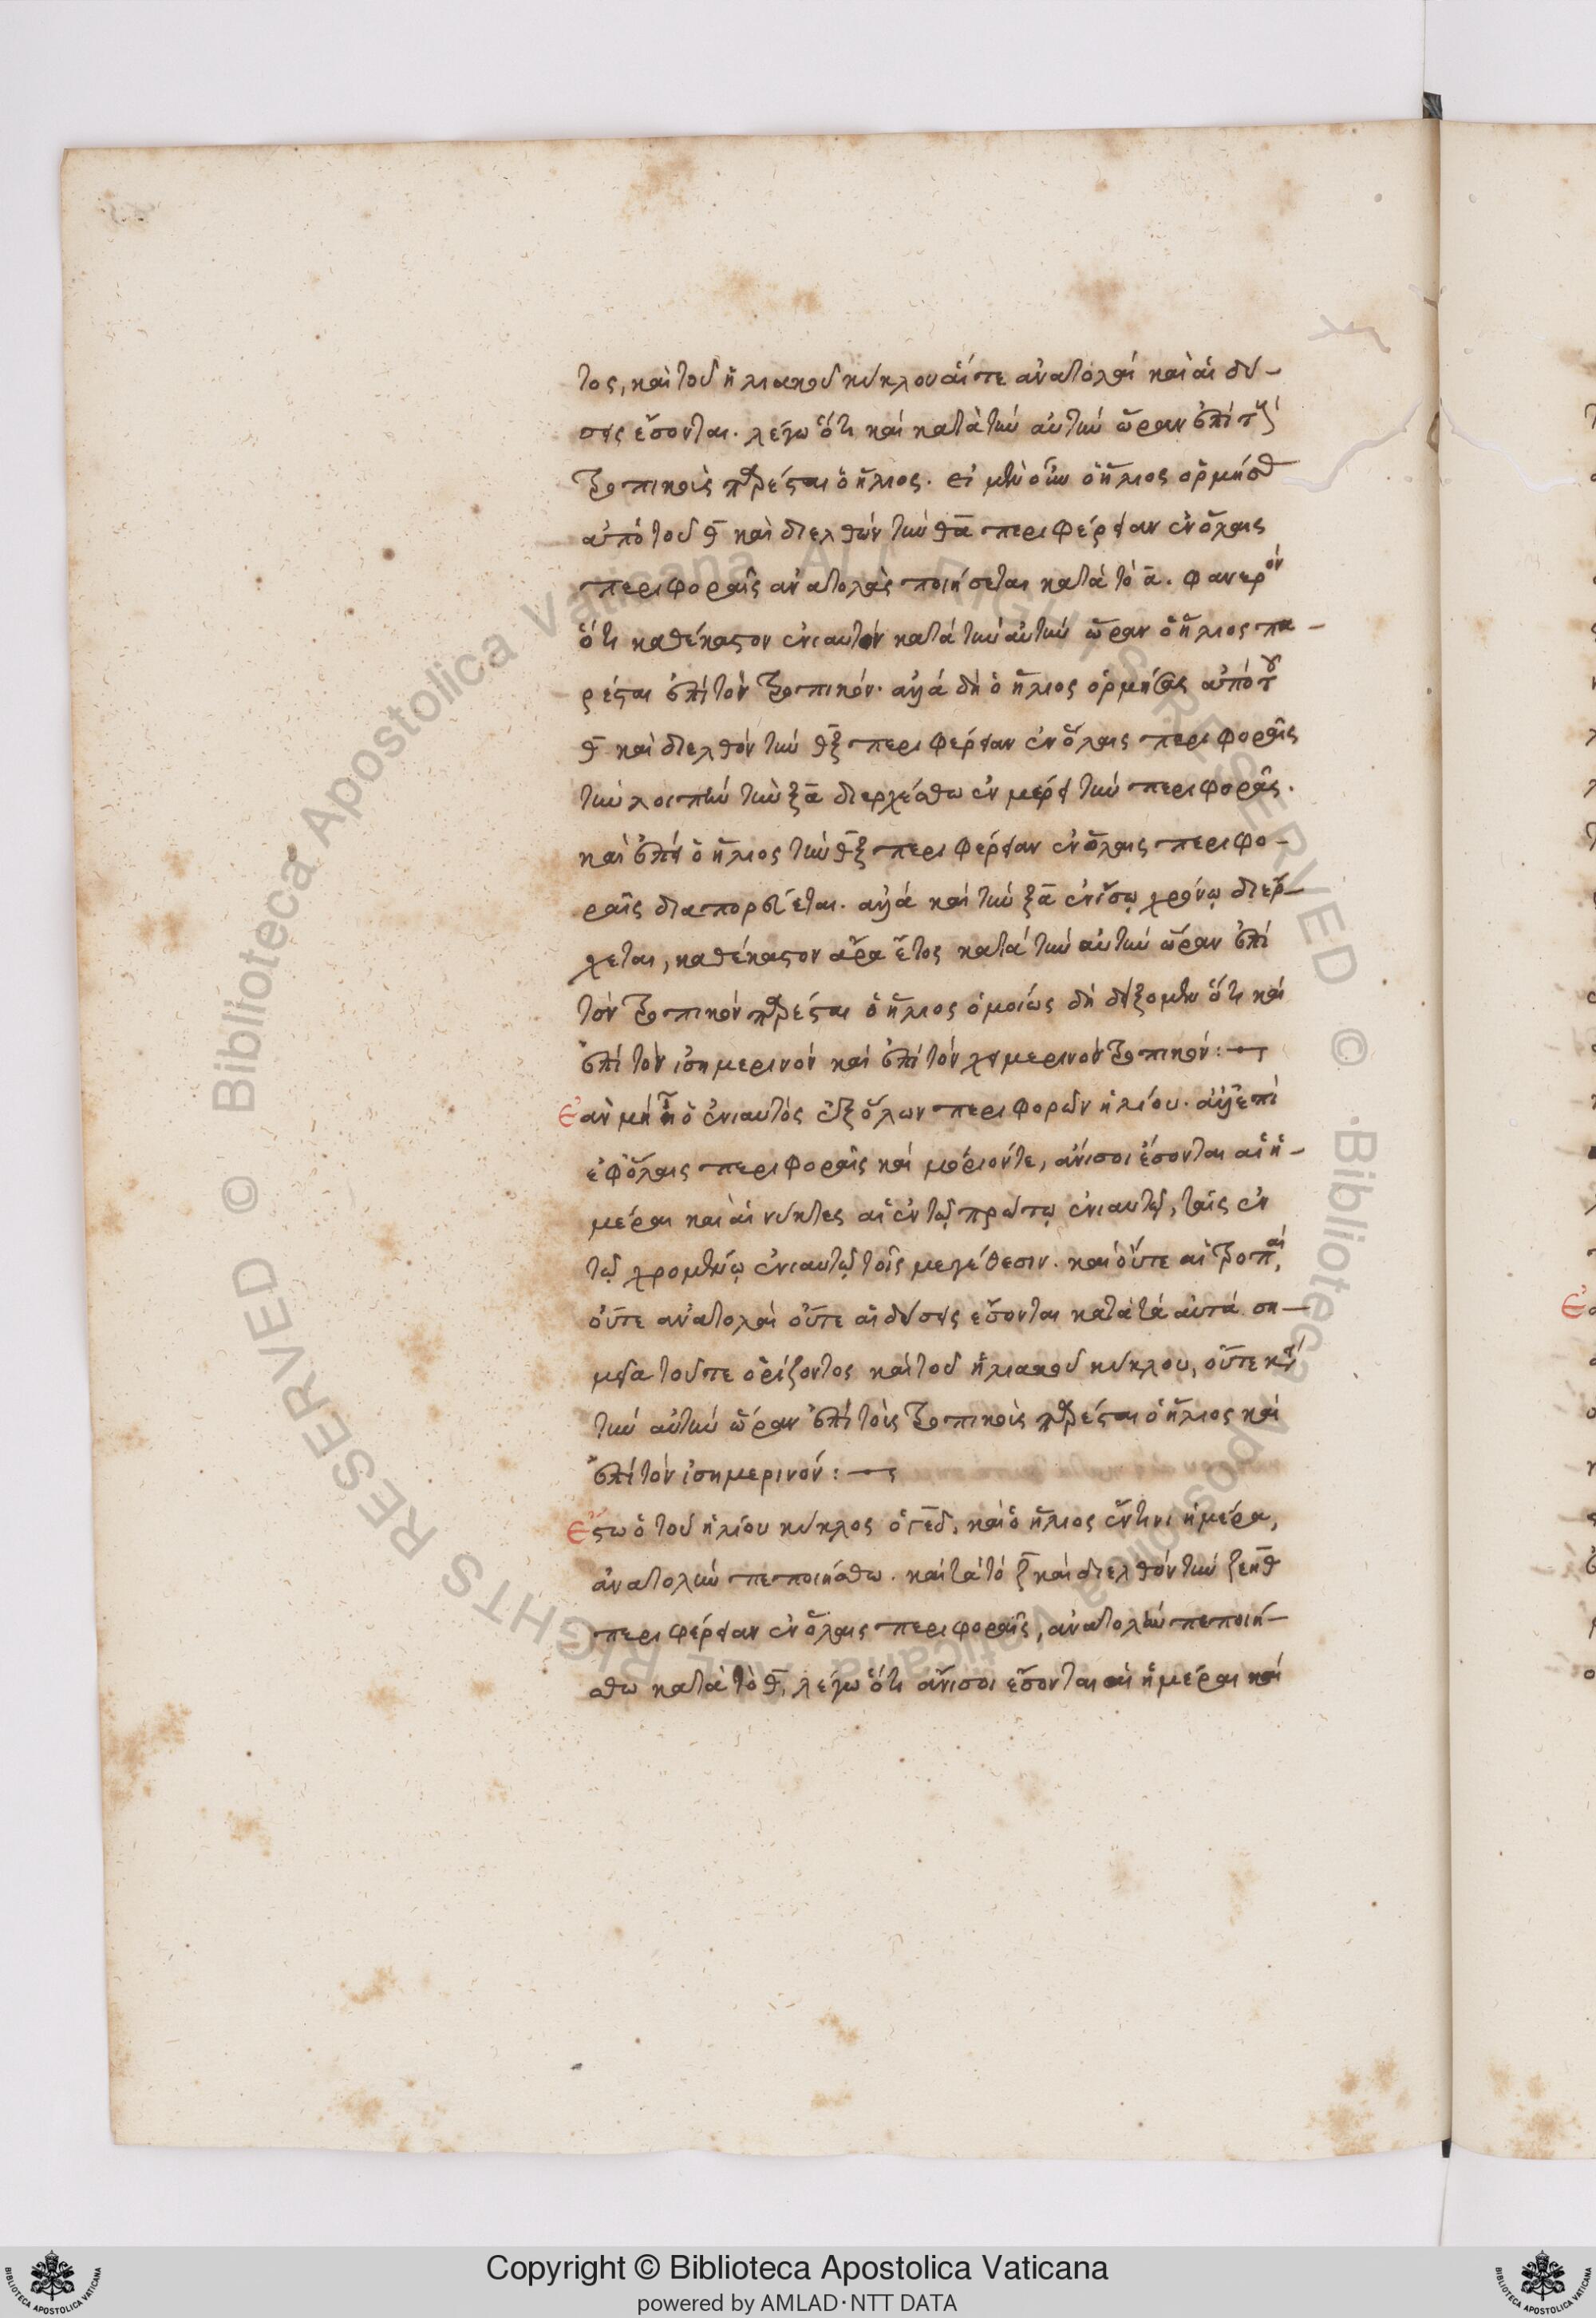 τος, καὶ τοῦ ἡλιακοῦ κύκλου αἵ τε ἀνατολαὶ καὶ αἱ δύ-
σεις ἔσονται. λέγω ὅτι καὶ κατὰ τὴν αὐτὴν ὥραν ἐπὶ τοῖς
τροπικοῖς παρέσται ὁ ἥλιος. εἰ μὲν οὖν ὁ ἥλιος ὁρμησθ
ἀπὸ τοῦ θ̄ καὶ διελθὼν τὴν θ̄ᾱ περιφέρειαν ἐν ὅλαις
περιφοραῖς ἀνατολὰς ποιήσεται κατὰ τὸ ᾱ. φανερὸν
ὅτι καθέκαστον ἐνιαυτὸν κατὰ τὴν αὐτὴν ὥραν ὁ ἥλιος πα-
ρέσται ἐπὶ τὸν τροπικόν. ἀλλὰ δὴ ὁ ἥλιος ὁρμήσας ἀπὸ τοῦ
θ̄ καὶ διελθὸν τὴν θ̄ξ̄ περιφέρειαν ἐν ὅλαις περιφοραῖς
τὴν λοιπὴν τὴν ξ̄ᾱ διερχέσθω ἐν μέρει τὴν περιφορᾶς.
καὶ ἐπεὶ ὁ ἥλιος τὴν θ̄ξ̄ περιφέρειαν ἐν ὅλαις περιφο-
ραῖς διαπορεύεται. ἀλλὰ καὶ τὴν ξ̄ᾱ ἐν ἴσῳ χρόνῳ διέρ-
χεται, καθέκαστον ἄρα ἔτος κατὰ τὴν αὐτὴν ὥραν ἐπὶ
τὸν τροπικὸν παρέσται ὁ ἥλιος ὁμοίως δὴ δείξομεν ὅτι καὶ
ἐπὶ τὸν ἰσημερινὸν καὶ ἐπὶ τὸν χειμερινὸν τροπικόν:—
Ἐὰν μὴ ᾖ ὁ ἐνιαυτὸς ἐξ ὅλων περιφορῶν ἡλίου. ἀλλ' ἐπὶ
ἐφ' ὅλαις περιφοραῖς καὶ μόριον τε, ἄνισοι ἔσονται αἱ ἡ-
μέραι καὶ αἱ νύκτες αἱ ἐν τῷ πρώτῳ ἐνιαυτῷ, ταῖς ἐν
τῷ χρομένῳ ἐνιαυτῷ τοῖς μεγέθεσιν. καὶ οὔτε αἱ τροπαὶ,
οὔτε ἀνατολαὶ οὔτε αἱ δύσεις ἔσονται κατὰ τὰ αὐτὰ ση-
μεῖα τοῦ τε ὁρίζοντος καὶ τοῦ ἡλιακοῦ κύκλου, οὔτε κατὰ
τὴν αὐτὴν ὥραν ἐπὶ τοῖς τροπικοῖς παρέσται ὁ ἥλιος καὶ
ἐπὶ τὸν ἰσημερινόν:—
Ἔστω ὁ τοῦ ἡλίου κύκλος ὁ γ̄ε̄δ̄, καὶ ὁ ἥλιος ἔν τινι ἡμέρᾳ,
ἀνατολὴν πεποιήσθω. κατὰ τὸ ζ̄ καὶ διελθὸν τὴν ζεηθ
περιφέρειαν ἐν ὅλαις περιφοραῖς, ἀνατολὴν πεποιή-
σθω κατὰ τὸ θ̄, λέγω ὅτι ἄνισοι ἔσονται αἱ ἡμέραι καὶ
Copyright © Biblioteca Apostolica Vaticana
powered by AMLAD·NTT DATA